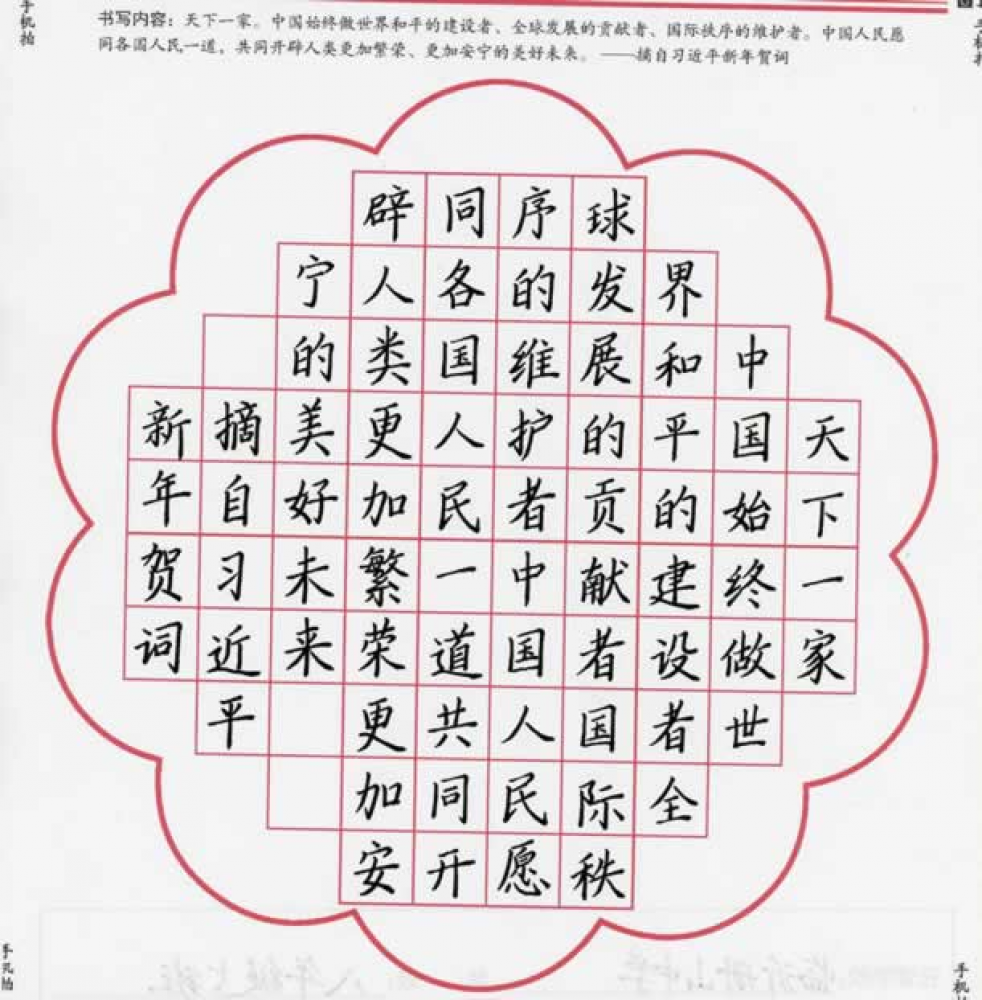 手机拍
书写内容：天下一家。中国始终做世界和平的建设者、全球发展的贡献者、国际秩序的维护者。中国人民愿
同各国人民一道，共同开辟人类更加繁荣、更加安宁的美好未来。——摘自习近平新年贺词
天下一家
中国始终做世
界和平的建设者全
球发展的贡献者国际秩
序的维护者中国人民愿
同各国人民一道共同开
辟人类更加繁荣更加安
宁的美好未来
摘自习近平
新年贺词
手机拍
手机